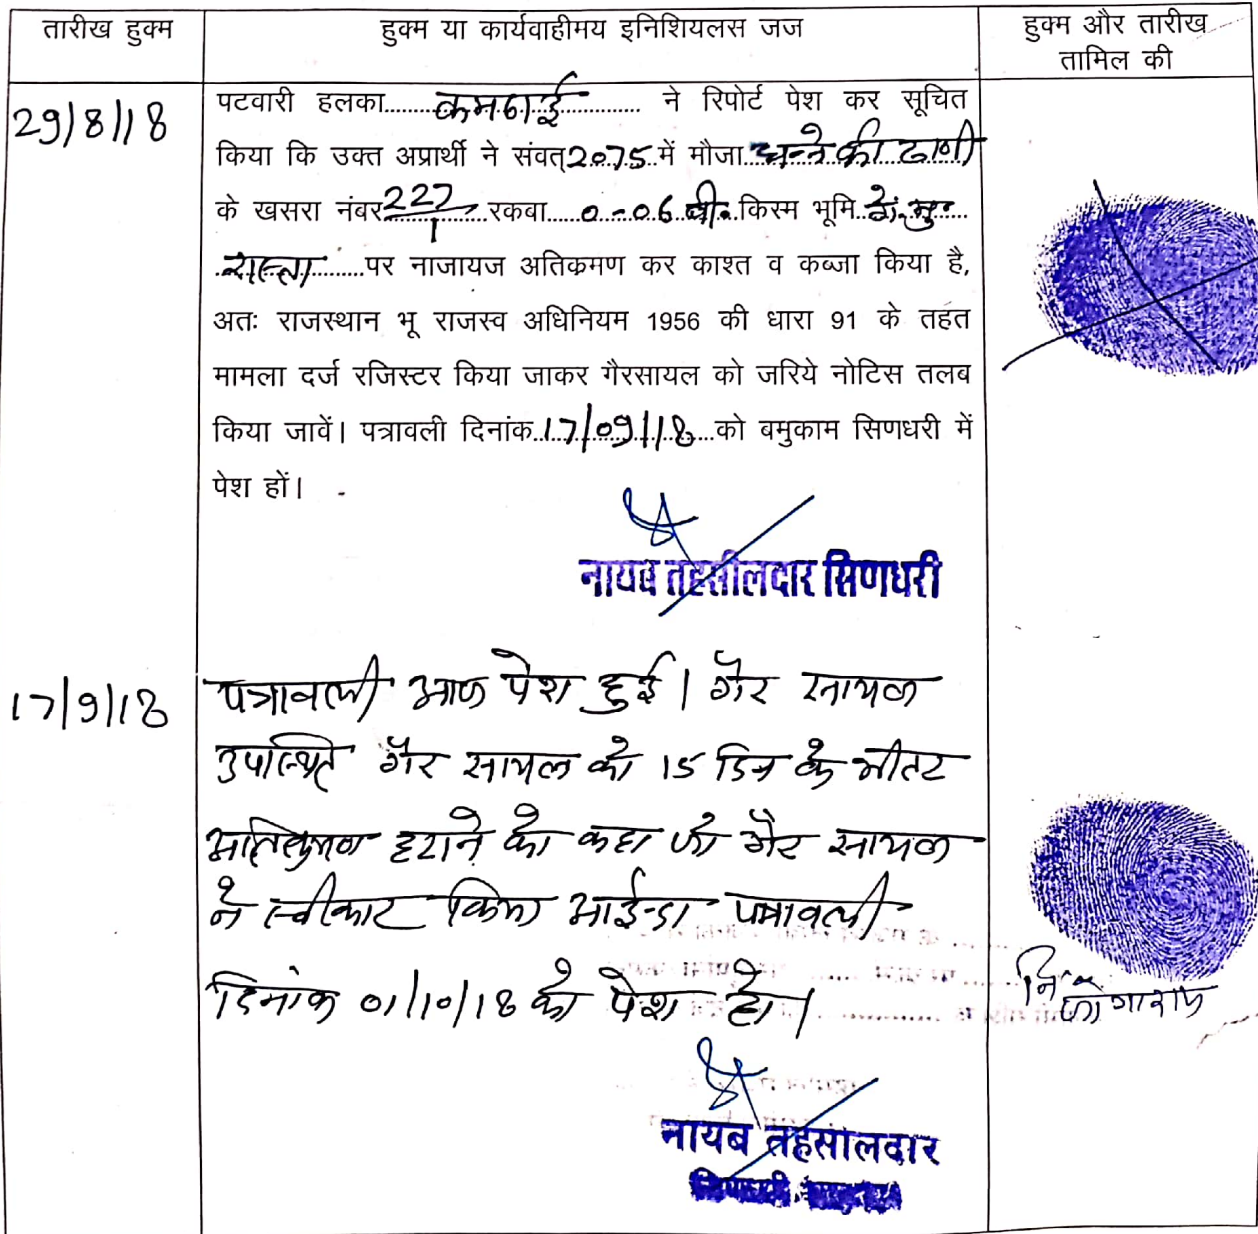 तारीख हुक्म
हुक्म या कार्यवाहीमय इनिशियलस जज
हुक्म और तारीख
तामिल की
29/8/18
पटवारी हलका.......कमठाई............ ने रिपोर्ट पेश कर सूचित
किया कि उक्त अप्रार्थी ने संवत् 2075 में मौजा की ढाणी
के खसरा नंबर 227/1 रकबा....0-06 बी. किस्म भूमि गै.मु.
रास्ता.........पर नाजायज अतिक्रमण कर काश्त व कब्जा किया है,
अतः राजस्थान भू राजस्व अधिनियम 1956 की धारा 91 के तहत
मामला दर्ज रजिस्टर किया जाकर गैरसायल को जरिये नोटिस तलब
किया जावें। पत्रावली दिनांक..17/09/18...को बमुकाम सिणधरी में
पेश हों।
नायब तहसीलदार सिणधरी
17/9/18
पत्रावली आज पेश हुई। गैर सायल
उपस्थित गैर सायल को 15 दिन के भीतर
अतिक्रमण हटाने को कहा जो गैर सायल
ने स्वीकार किया आईन्दा पत्रावली
दिनांक 01/10/18 को पेश हो।
नि
जोगाराम
नायब तहसीलदार
सिणधरी